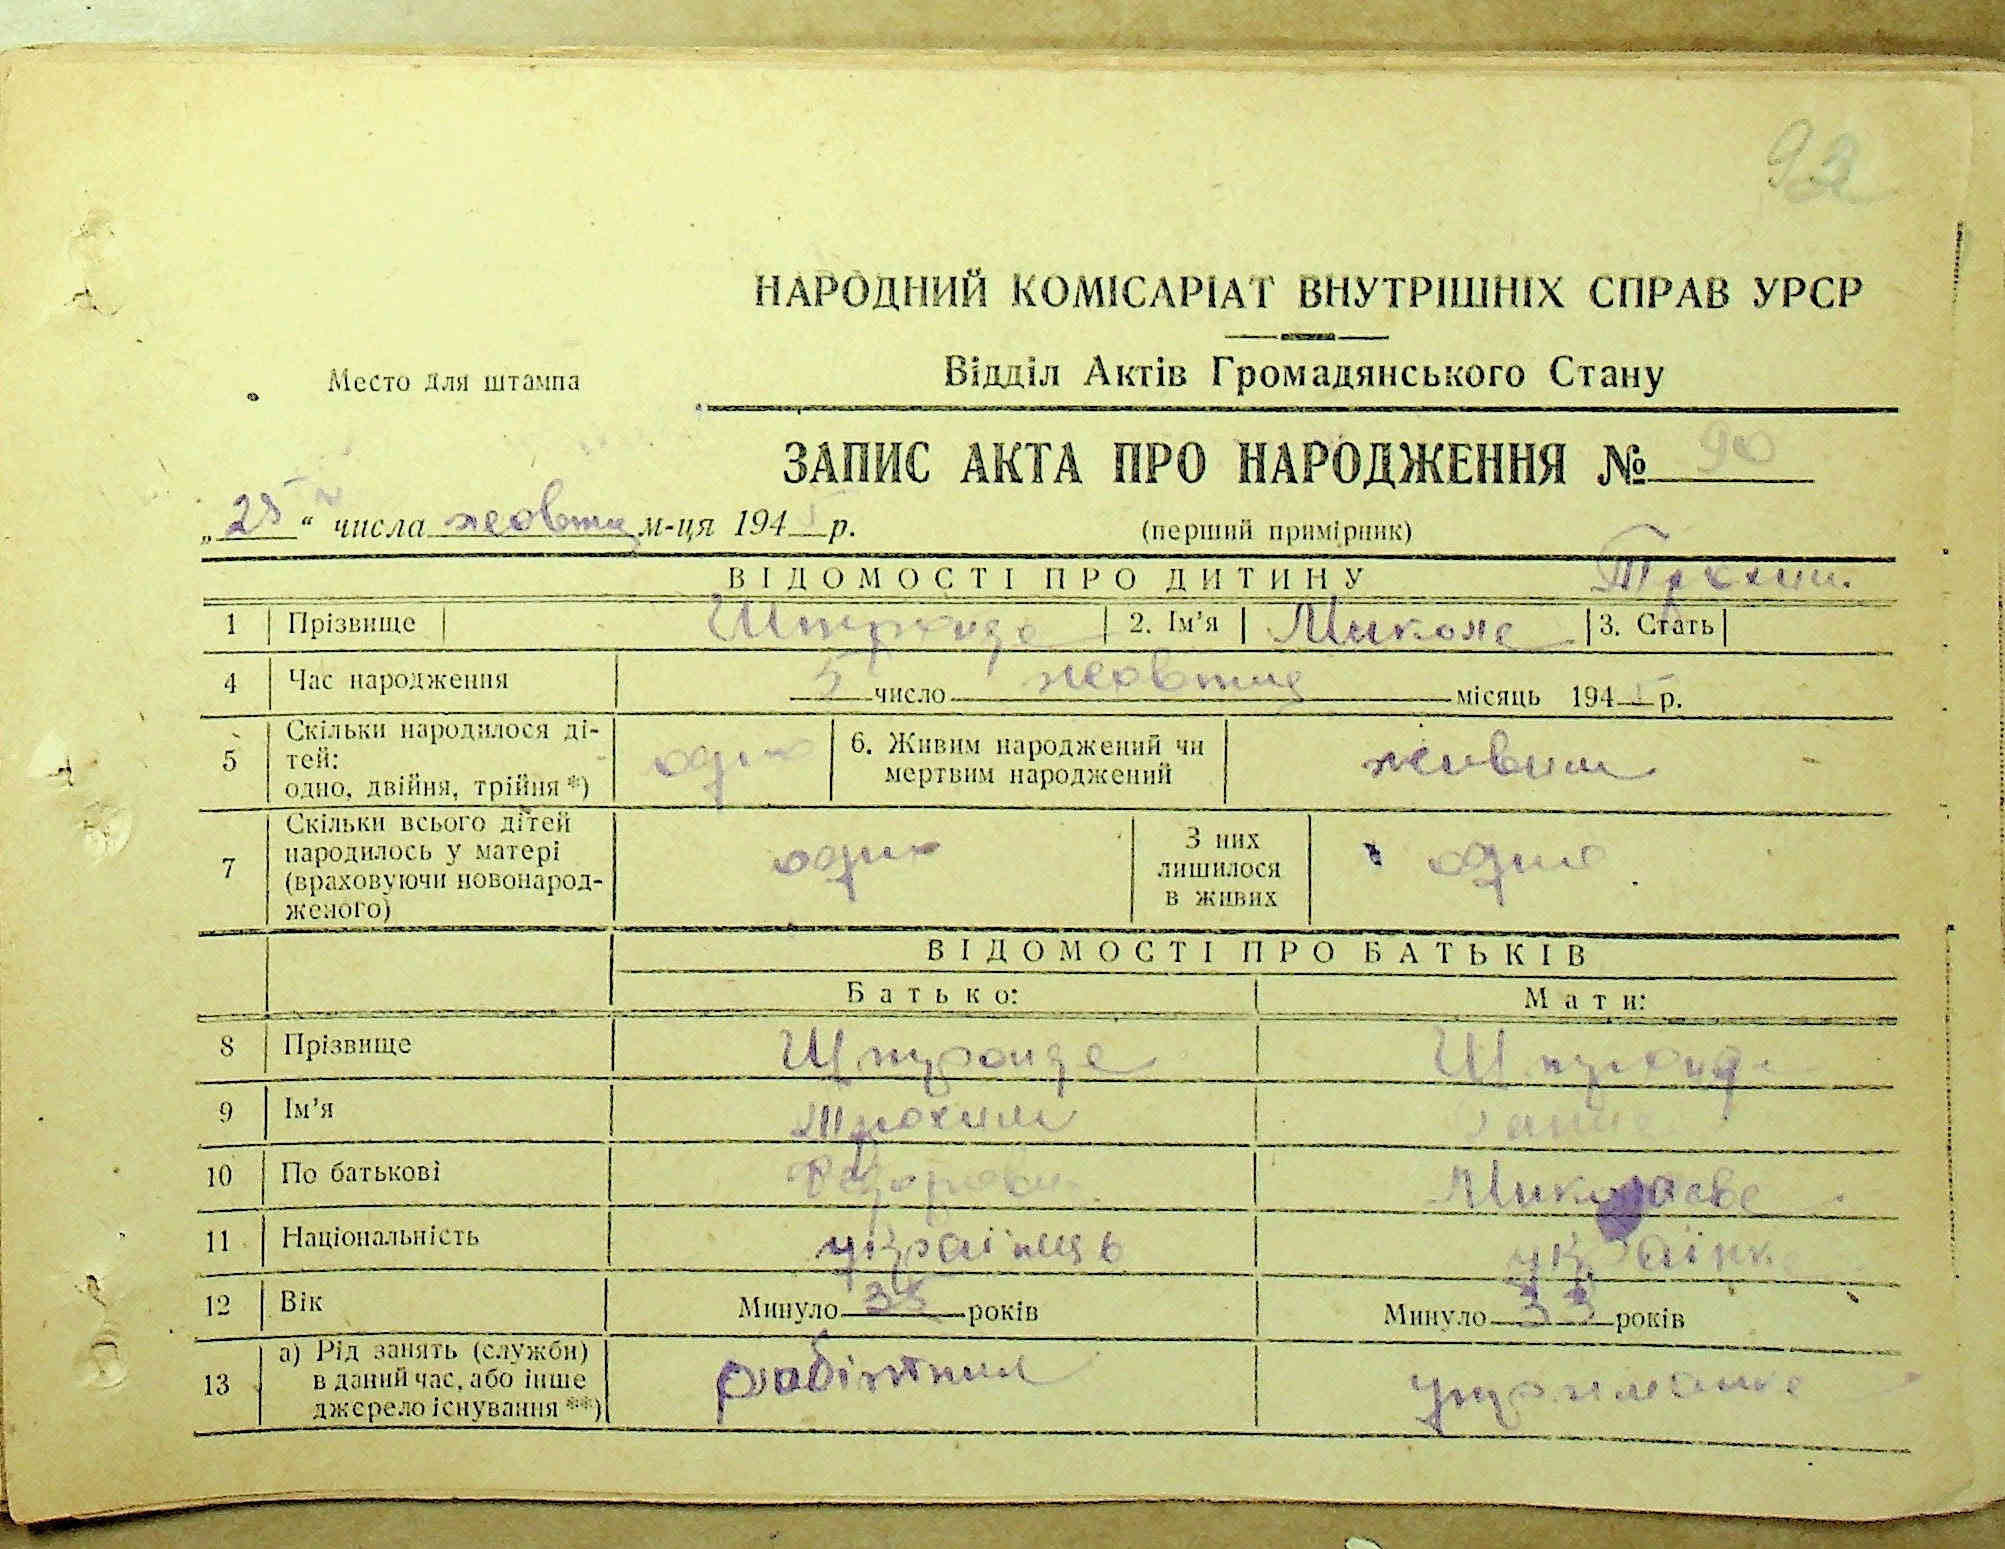 92
НАРОДНИЙ КОМІСАРІАТ ВНУТРІШНІХ СПРАВ УРСР
Место для штампа
Відділ Актів Громадянського Стану
ЗАПИС АКТА ПРО НАРОДЖЕННЯ № 90
„25“ числа жовтня м-ця 194 р.
(перший примірник)
ВІДОМОСТІ ПРО ДИТИНУ
1 Прізвище 2. Ім'я Микола 3. Стать
4 Час народження 5 число жовтня місяць 194 р.
5 Скільки народилося ді-
тей:
одно, двійня, трійня *) одно
6. Живим народжений чи
мертвим народжений живим
7 Скільки всього дітей
народилось у матері
(враховуючи новонарод-
женого) одно
З них
лишилося
в живих одно
ВІДОМОСТІ ПРО БАТЬКІВ
Батько: Мати:
8 Прізвище
9 Ім'я Трохим
10 По батькові Федорович Миколаєвна
11 Національність українець українка
12 Вік Минуло 35 років Минуло 33 років
13 а) Рід занять (служби)
в даний час, або інше
джерело існування **) робітник утриманка